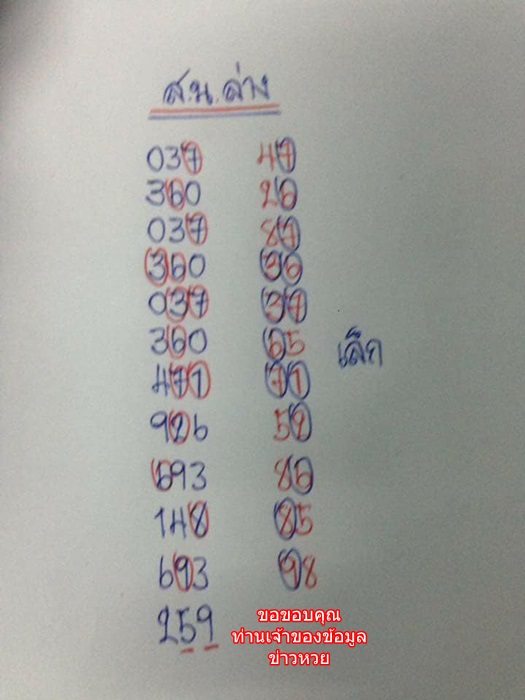 ส.น.ล่าง
037 47
360 26
037 87
360 36
037 37
360 65
471 71
926 52
693 86
148 85
693 98
259
เล็ก
ขอขอบคุณ
ท่านเจ้าของข้อมูล
ข่าวหวย